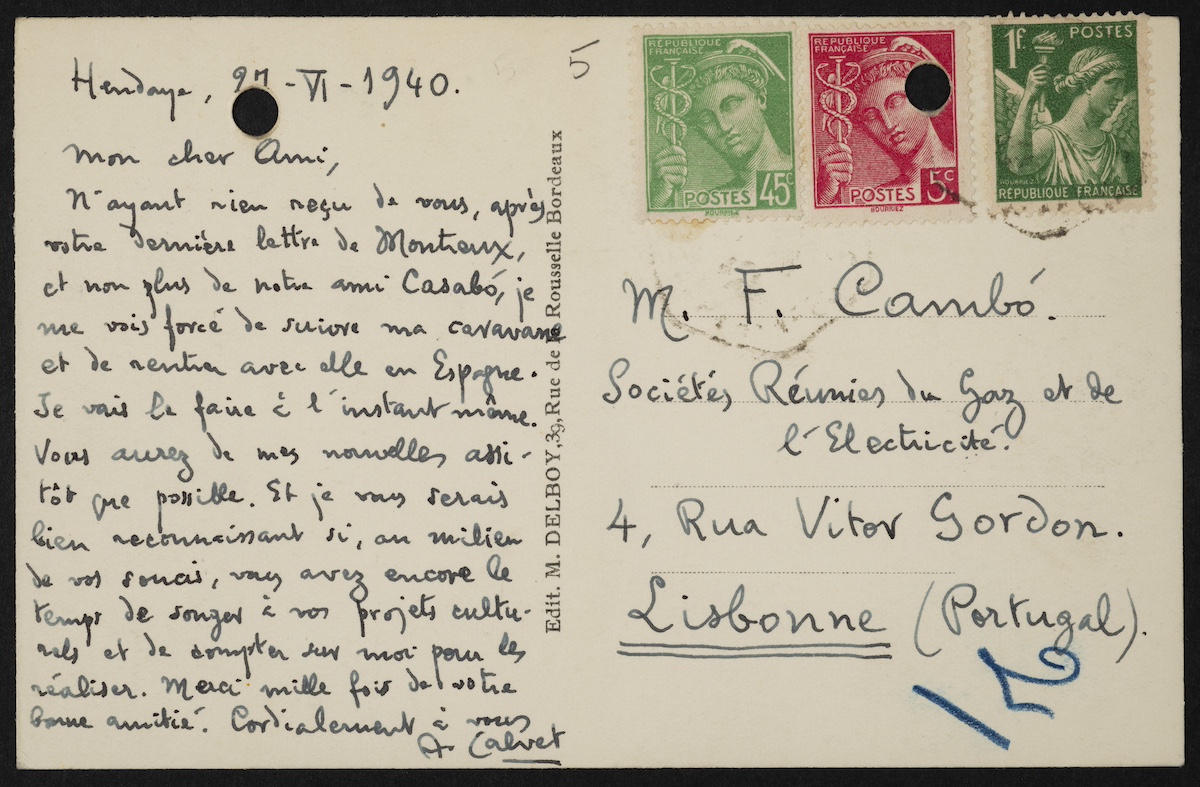 Hendaye, 27-VI-1940.
Mon cher Ami,
N'ayant rien reçu de vous, après
votre dernière lettre de Montreux,
et non plus de notre ami Casabó, je
me vois forcé de suivre ma caravane
et de rentrer avec elle en Espagne.
Je vais le faire à l'instant même.
Vous aurez de mes nouvelles assi-
tôt que possible. Et je vous serais
bien reconnaissant si, au milieu
de vos soucis, vous avez encore le
temps de songer à vos projets cultu-
rels et de compter sur moi pour les
réaliser. Merci mille fois de votre
bonne amitié. Cordialement à vous
A. Calvet
Edit. M. DELBOY, 39, Rue de la Rousselle Bordeaux
REPUBLIQUE
FRANÇAISE
POSTES 45c
HOURRIEZ
REPUBLIQUE
FRANÇAISE
POSTES 5c
HOURRIEZ
1f. POSTES
HOURRIEZ
RÉPUBLIQUE FRANÇAISE
M. F. Cambó.
Sociétés Réunies du Gaz et de
l'Electricité.
4, Rua Vitor Gordon.
Lisbonne (Portugal).